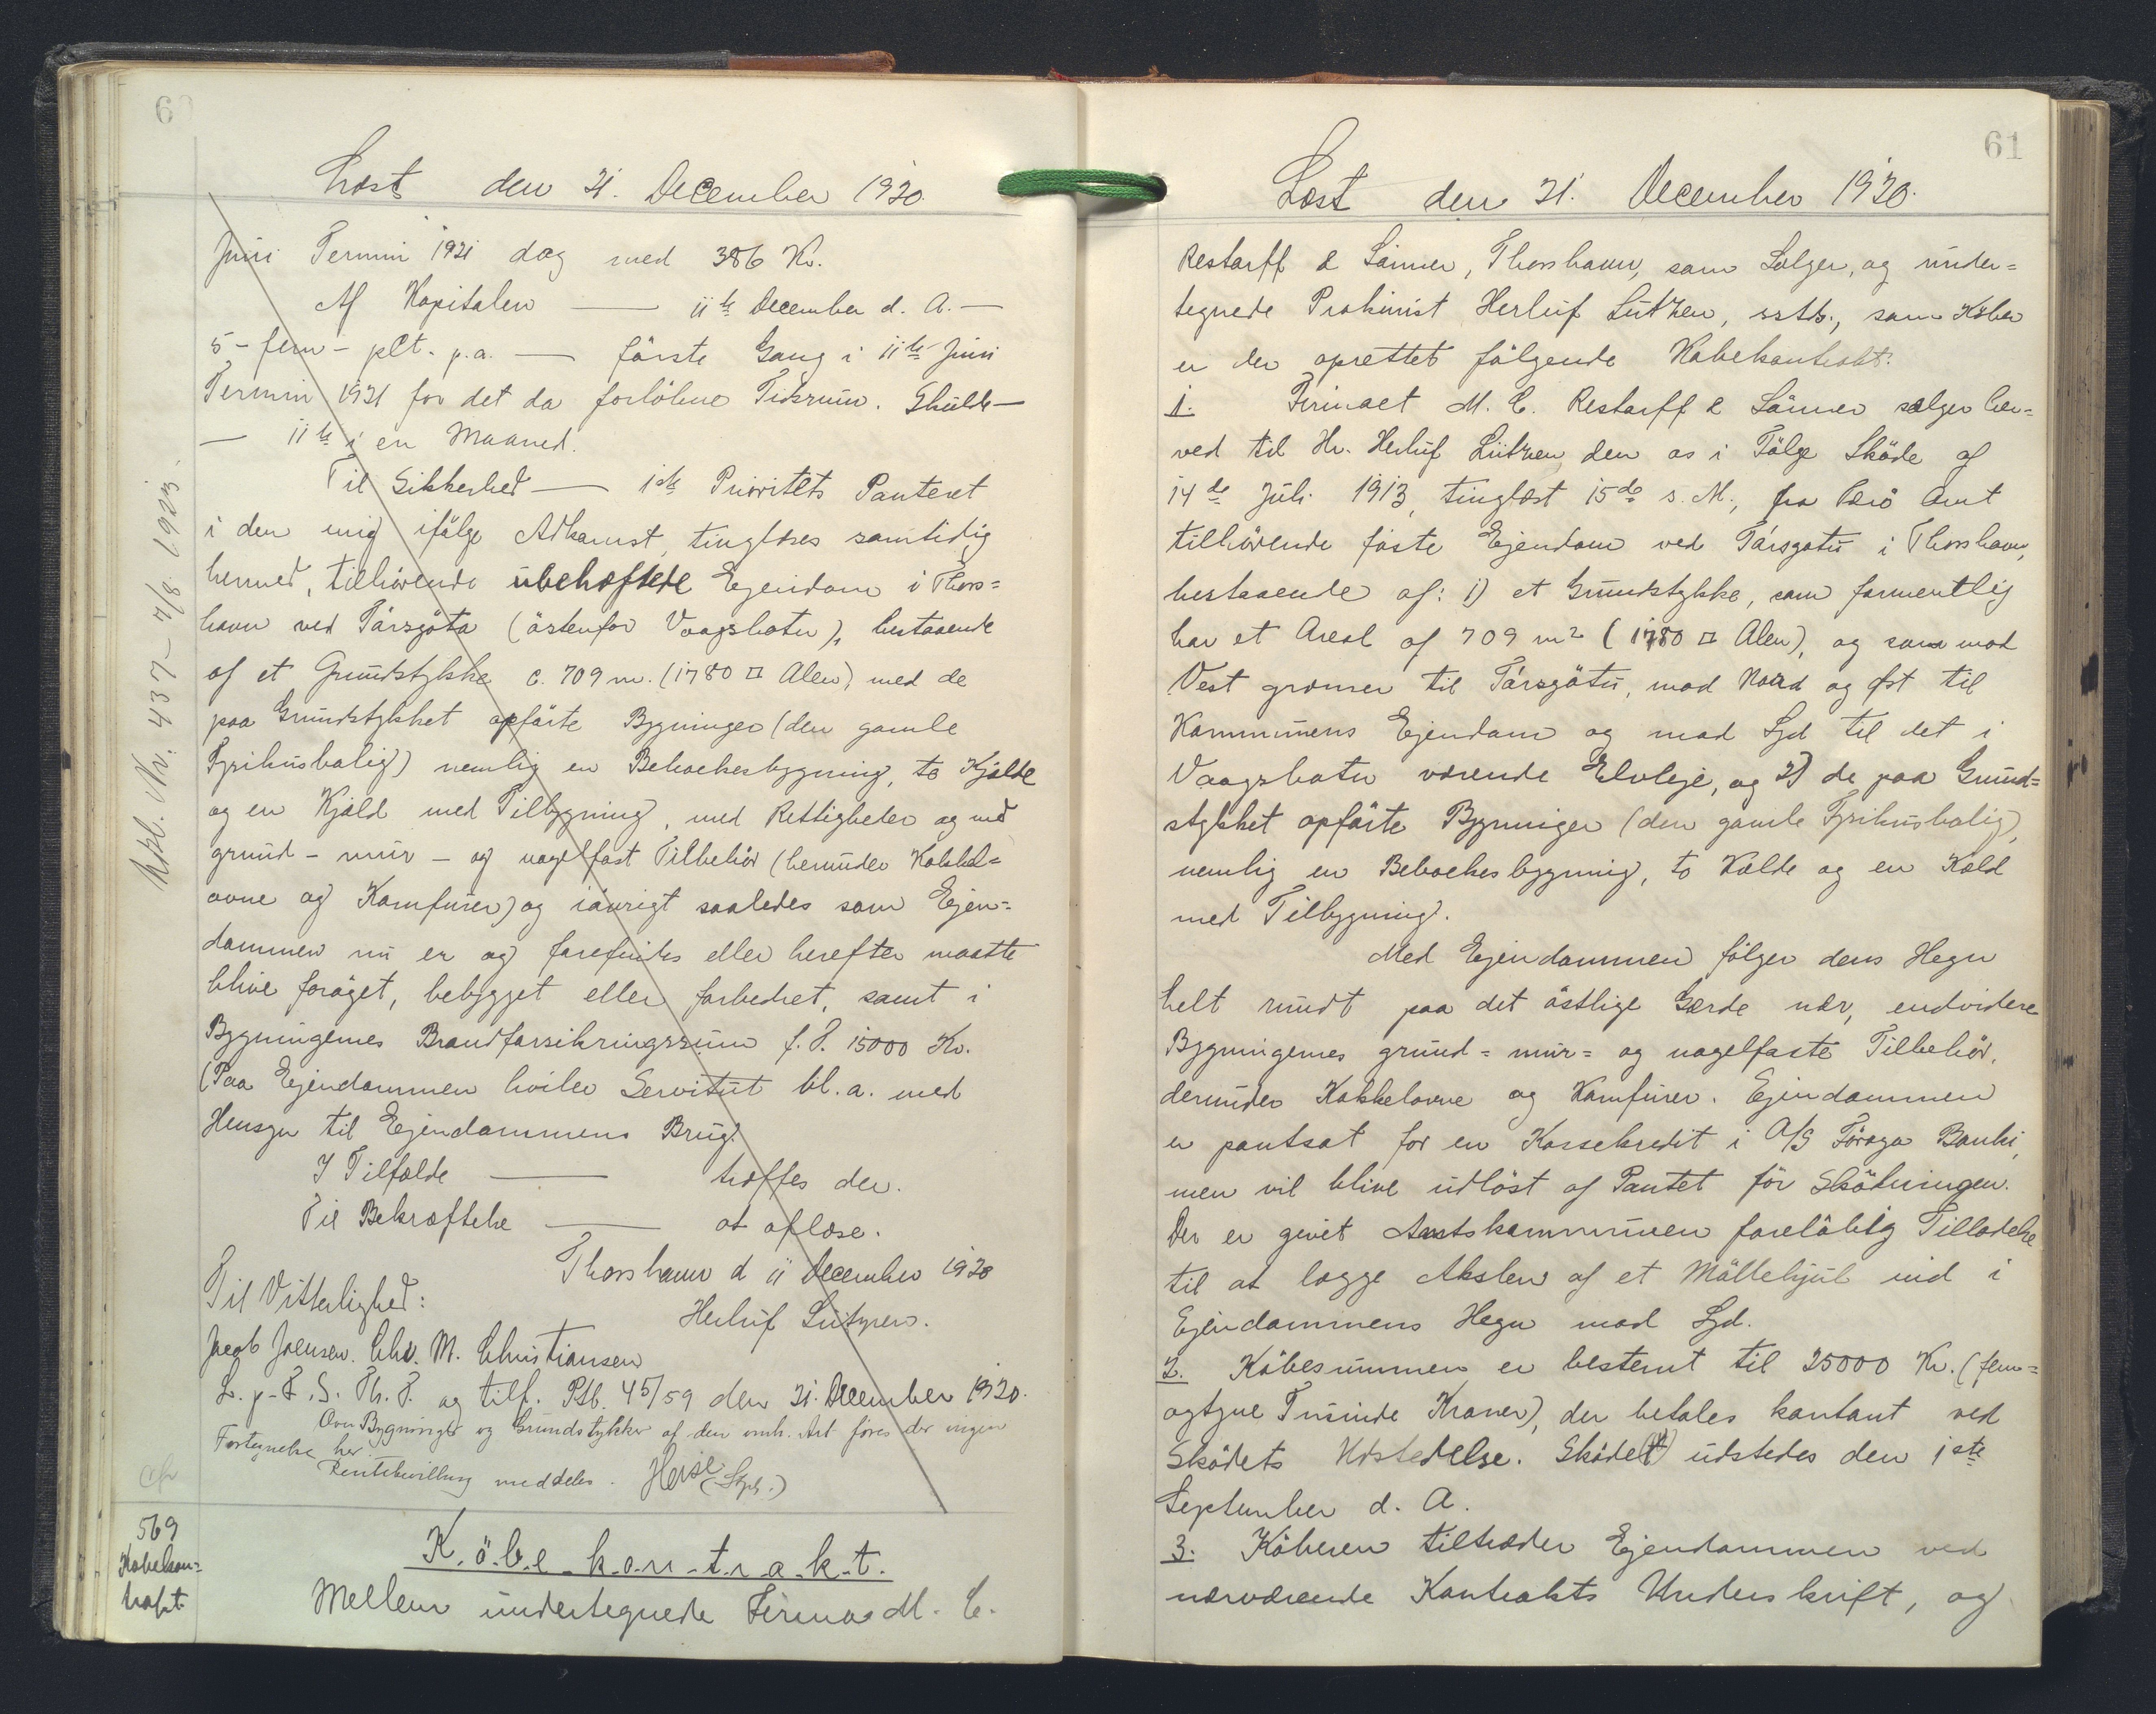 60
Læst den 21. December 1920.
Juni Termin 1921 dog med 386 Kr.
Af Kapitalen — 11te December d. A. —
5 - fem - pCt. p.a. — förste Gang i 11te Juni
Termin 1921 for det da forløbne Tidsrum. Skulde —
— 11te i en Maaned.
Til Sikkerhed — 1ste Prioritets Panteret
i den mig ifölge Adkomst, tinglæses samtidig
hermed, tilhörende ubehæftede Ejendom i Thors=
havn ved Társgöta (östenfor Vaagsbotn), bestaaende
af et Grundstykke c. 709 m. (1780 □ Alen), med de
paa Grundstykket opförte Bygninger (den gamle
Fysikusbolig) nemlig en Beboelsesbygning, to Kjælde
og en Kjæld med Tilbygning, med Rettigheder og med
grund - mur - og nagelfast Tilbehör (herunder Kakkel=
ovne og Komfurer) og iövrigt saaledes som Ejen=
dommen nu er og forefindes eller herefter maatte
blive foröget, bebygget eller forbedret, samt i
Bygningernes Brandforsikringssum f. T. 15000 Kr.
(Paa Ejendommen hviler Servitut bl. a. med
Hensyn til Ejendommens Brug.
I Tilfælde — træffes der.
Til Bekræftelse — at aflæse.
Thorshavn d 11 December 1920
Til Vitterlighed:
Herluf Lützen.
Jacob Joensen. Chr. M. Christiansen
L. p. F. S. Th. T. og tilf. Ptb. 45/59 den 21. December 1920.
Over Bygninger og Grundstykker af den omh. Art föres der ingen
Fortegnelse her
Rentebevilling meddeles. Heise (Stpl.)
Kpl. Nr. 437 - 7/8 1923.
569
Købekon=
trakt.
K.ö.b.e.k.o.n.t.r.a.k.t.
Mellem undertegnede Firma M. C.
61
Læst den 21. December 1920.
Restorff & Sönner, Thorshavn, som Sælger, og under=
tegnede Prokurist Herluf Lützen, ssts., som Köber
er der oprettet fölgende Köbekontrakt:
1. Firmaet M. C. Restorff & Sönner sælger her=
ved til Hr. Herluf Lützen den os i Fölge Sköde af
14de Juli 1913, tinglæst 15de s. M., fra Færö Amt
tilhörende faste Ejendom ved Társgötu i Thorshavn,
bestaaende af: 1) et Grundstykke, som formentlig
har et Areal af 709 m2 (1780 □ Alen), og som mod
Vest grænser til Társgötu, mod Nord og Øst til
Kommunens Ejendom og mod Syd til det i
Vaagsbotn værende Elvleje, og 2) de paa Grund=
stykket opförte Bygninger (den gamle Fysikusbolig),
nemlig en Beboelsesbygning, to Kælde og en Kæld
med Tilbygning.
Med Ejendommen fölger dens Hegn
helt rundt paa det östlige Gærde nær, endvidere
Bygningernes grund= mur= og nagelfaste Tilbehör,
derunder Kakkelovne og Komfurer. Ejendommen
er pantsat for en Kassekredit i A/S Föroya Banki,
men vil blive udlöst af Pantet för Sködningen.
Der er givet Amtskommunen forelöbig Tilladelse
til at lægge Akslen af et Möllehjul ind i
Ejendommens Hegn mod Syd.
2. Köbesummen er bestemt til 25000 Kr. (fem=
ogtyve Tusinde Kroner), der betales kontant ved
Sködets Udstedelse. Sködet udstedes den 1ste
September d. A.
3. Köberen tiltræder Ejendommen ved
nærværende Kontrakts Underskrift, og